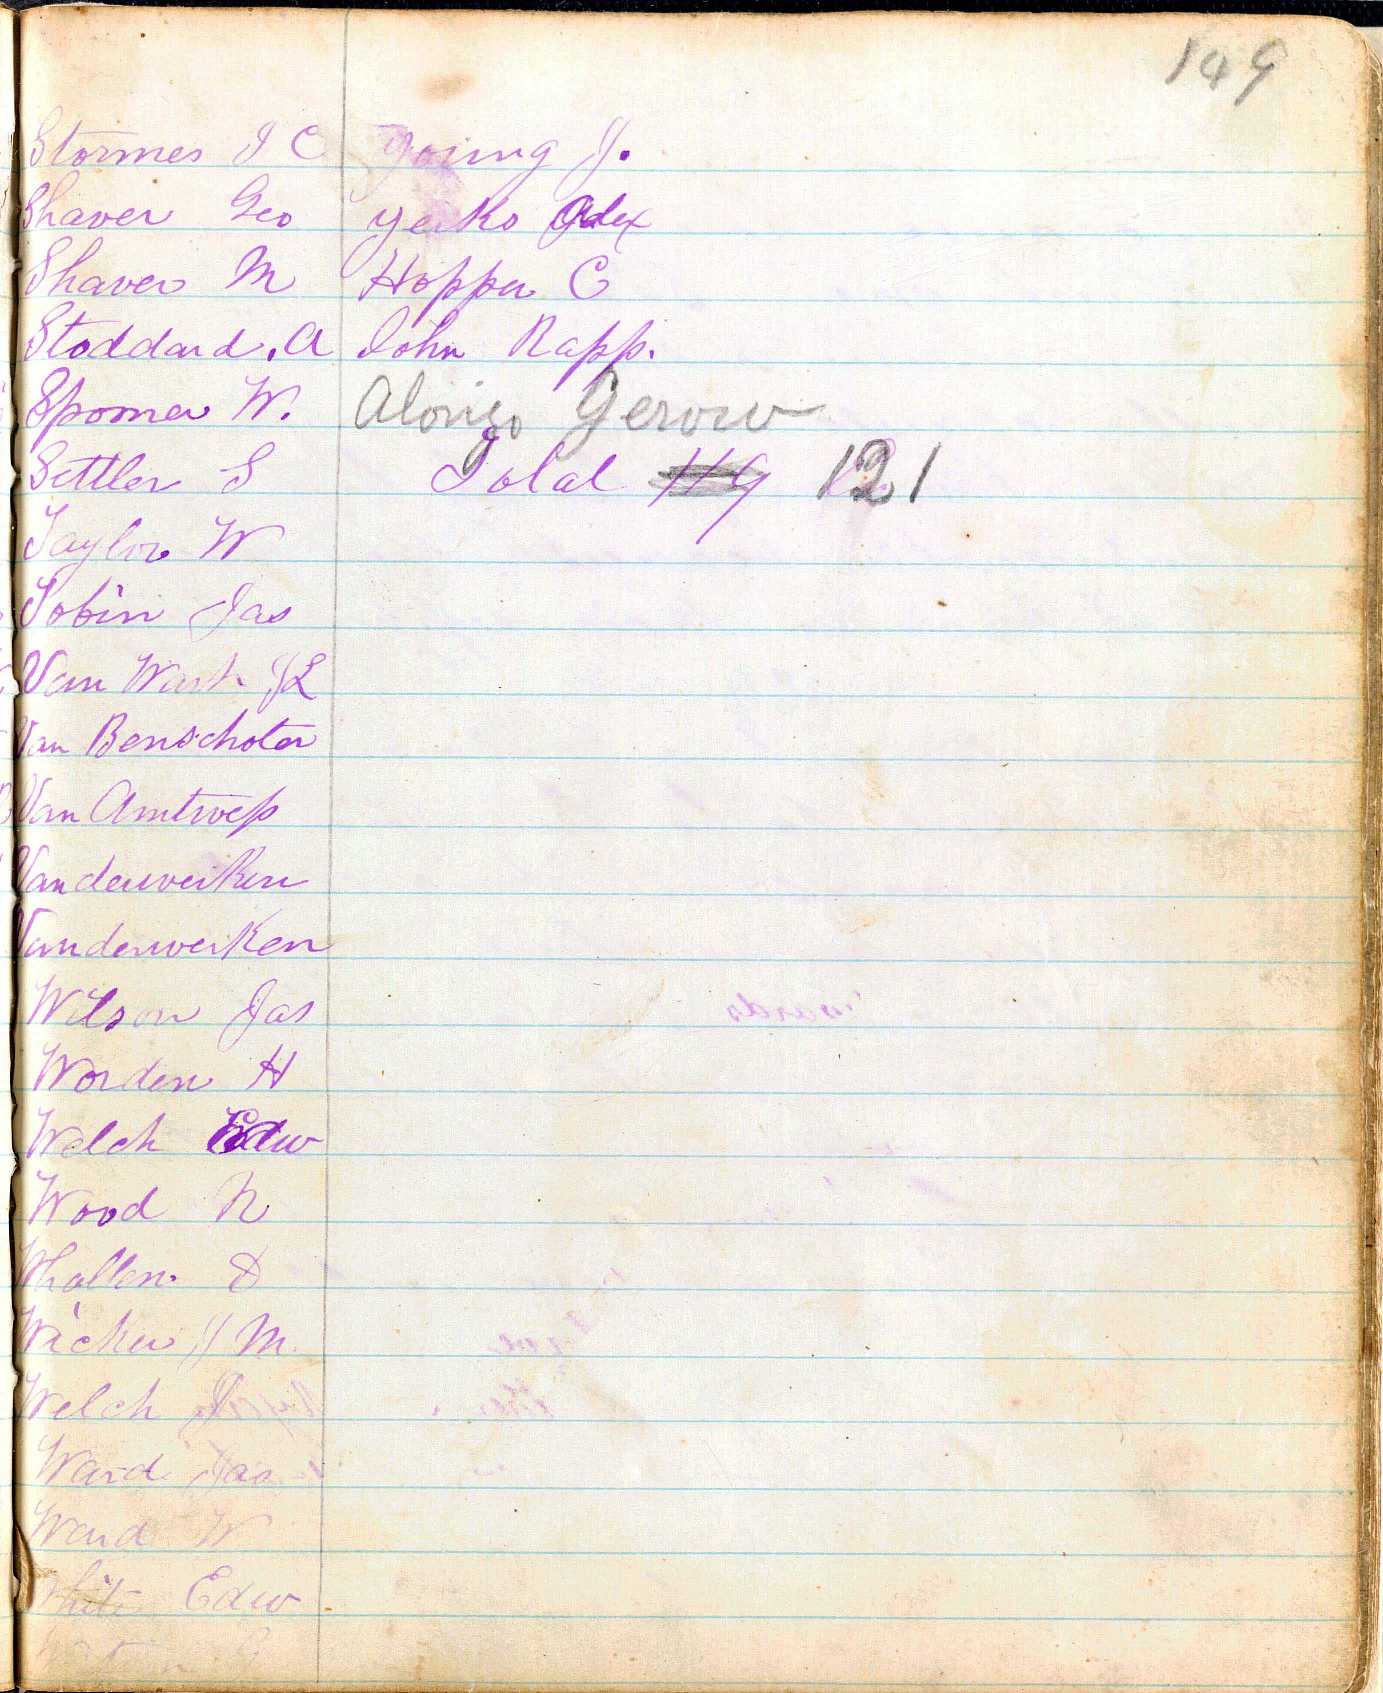 149
Stormes J C
Shaver Geo
Shaver M
Stoddard. A
Spomer W.
Settler S
Taylor W
Tobin Jas
Van Wart J L
Van Benschoter
Van Antwep
Vanderweiken
Vanderweiken
Wilson Jas
Worden H
Welch Edw
Wood R
Whallen. D
Wicker J M.
Welch J
Ward Jas
Ward W
White Edw
Young J.
Yerks Alex
Hopper C
John Rapp.
Alonzo Gerow
Total 119 121